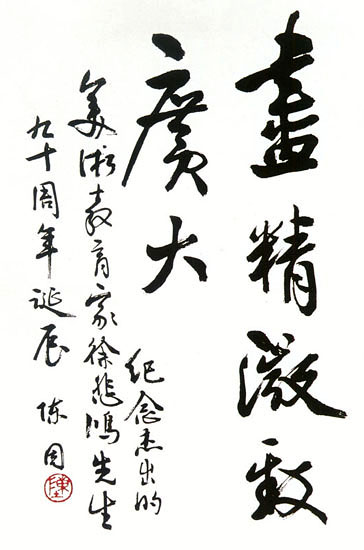 盡精微致
廣大
纪念杰出的
美術教育家徐悲鸿先生
九十周年诞辰 陈
陳